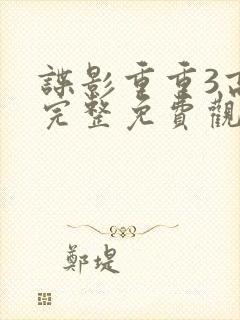 諜影重重3高
完整免費觀
鄭堤